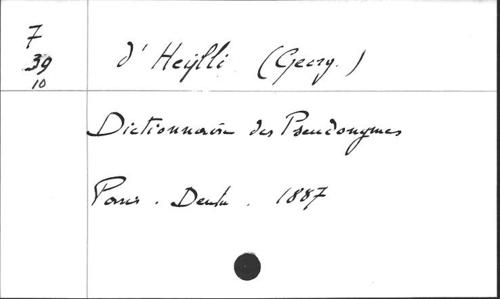 7
39
10
d'Heylli (Georg.)
Dictionnaire des Pseudonymes
Paris. Dentu. 1887